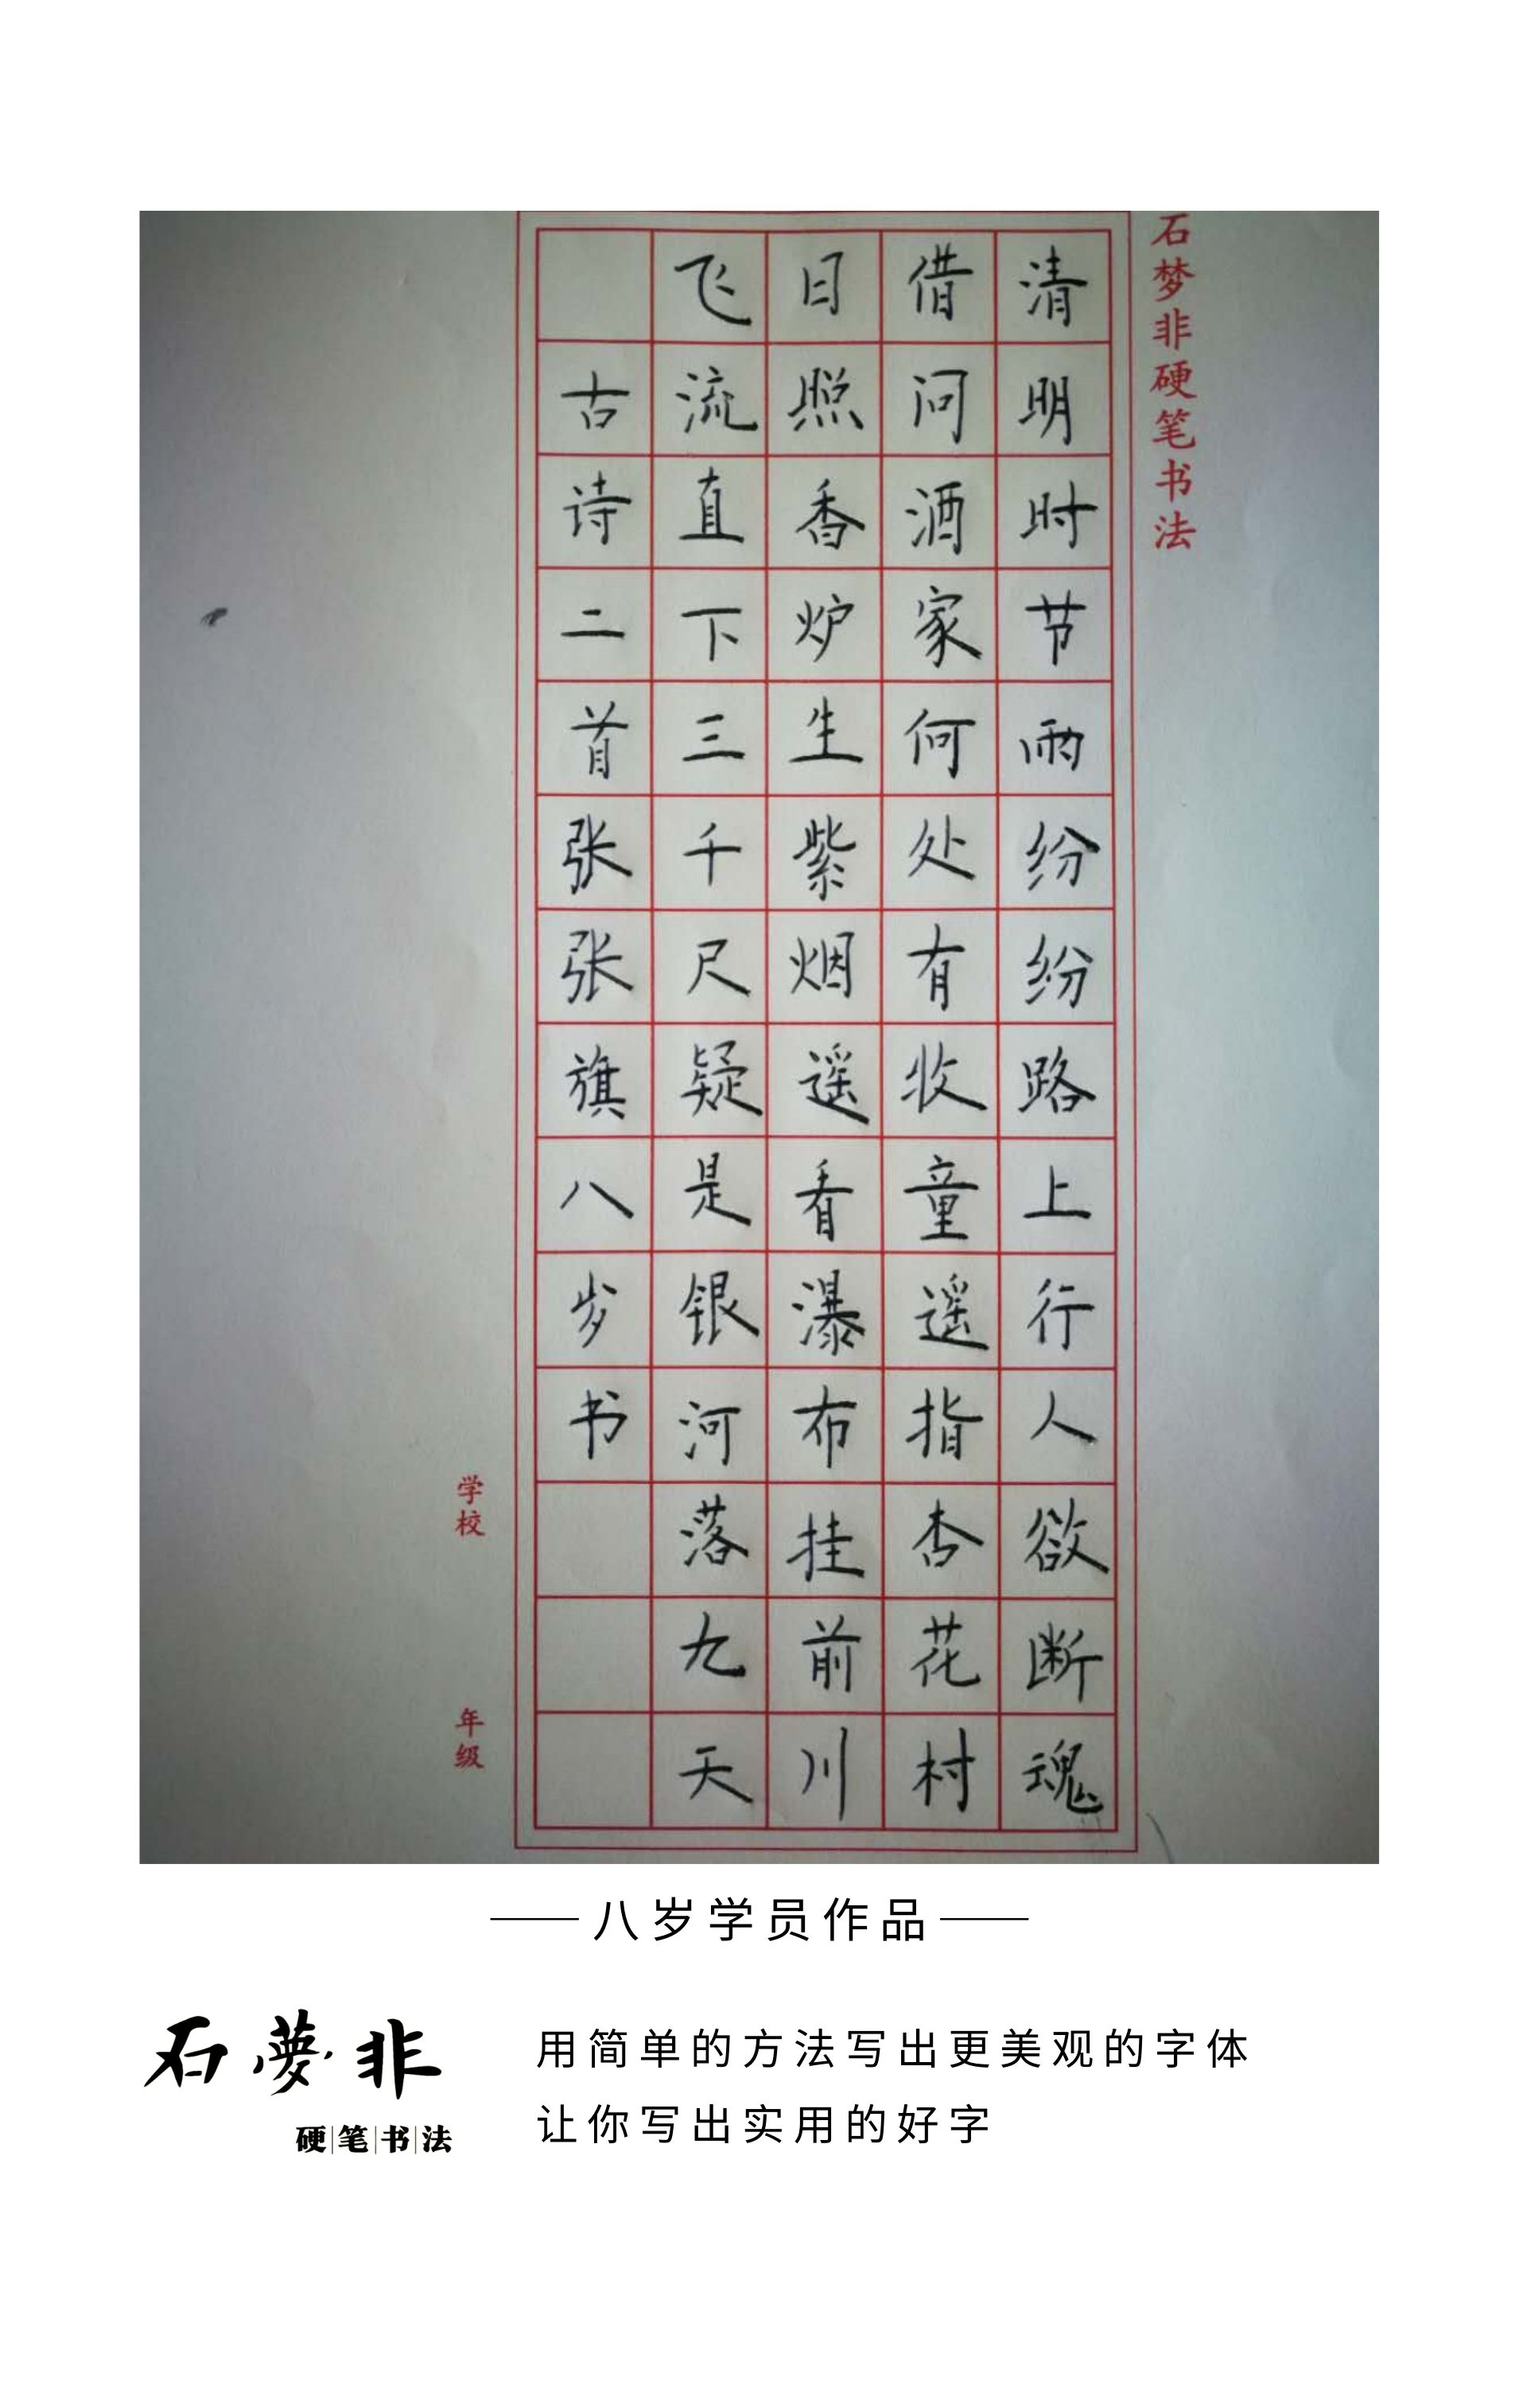 石梦非硬笔书法
清明时节雨纷纷路上行人欲断魂
借问酒家何处有收童遥指杏花村
日照香炉生紫烟遥看瀑布挂前川
飞流直下三千尺疑是银河落九天
古诗二首张张旗八岁书
学校
年级
八岁学员作品
石夢非
硬笔书法
用简单的方法写出更美观的字体
让你写出实用的好字